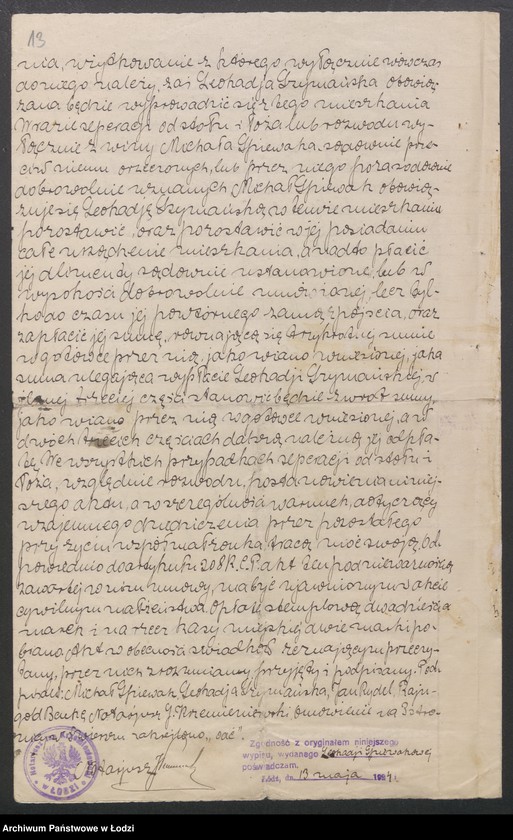 13
nia, użytkowanie z którego wyłącznie wówczas
do niego należy, zaś Leokadja Szymańska obowią-
zana będzie wyprowadzić się z tego mieszkania
W razie separacji od stołu i łoża lub rozwodu wy-
łącznie z winy Michała Śpiewaka, sądownie prze-
ciw niemu orzeczonych, lub przez niego pozasądownie
dobrowolnie uznanych Michał Śpiewak obowią-
zuje się Leokadję Szymańską w temże mieszkaniu
pozostawić, oraz pozostawić w jej posiadaniu
całe urządzenie mieszkania, a nadto płacić
jej alimenty sądownie ustanowione, lub w
wysokości dobrowolnie umówionej, lecz tyl-
ko do czasu jej powtórnego zamążpójścia, oraz
zapłacić jej sumę, równającą się trzykrotnej sumie
w gotówce przez nią, jako wiano wniesionej, jaka
suma ulegająca wypłacie Leokadji Szymańskiej, w
jednej trzeciej części stanowić będzie zwrot sumy,
jako wiano przez nią w gotówce wniesionej, a w
dwóch trzecich częściach datową należną jej odpła-
tę. We wszystkich przypadkach separacji od stołu i
łoża, względnie rozwodu, postanowienia niniej-
szego aktu, a w szczególności warunek, dotyczący
wzajemnego dziedziczenia przez pozostałego
przy życiu współmałżonka, tracą moc swoją. Od-
powiednio do artykułu 208 K.C.P. akt ten pod nieważnością
zawartej w nim umowy, ma być ujawniony w akcie
cywilnym małżeństwa. Opłatę stemplową dwadzieścia
marek i na rzecz kasy miejskiej dwie marki po-
brano. Akt w obecności świadków zeznającym przeczy-
tany, przez nich zrozumiany przyjęty i podpisany. Pod-
pisali: Michał Śpiewak, Leokadja Szymańska, Jan Rydel, Rajn-
gold Bautz, Notarjusz J. Krzemieniewski omówienie na 3 stro-
nicy zakreślono „cać”.
Notarjusz
ŁODZI
Zgodność z oryginałem niniejszego
wypisu, wydanego Leokadji Śpiewakowej
poświadczam.
Łódź, dn. 13 maja 1924 r.
Archiwum Państwowe w Łodzi
szukajwarchiwach.pl